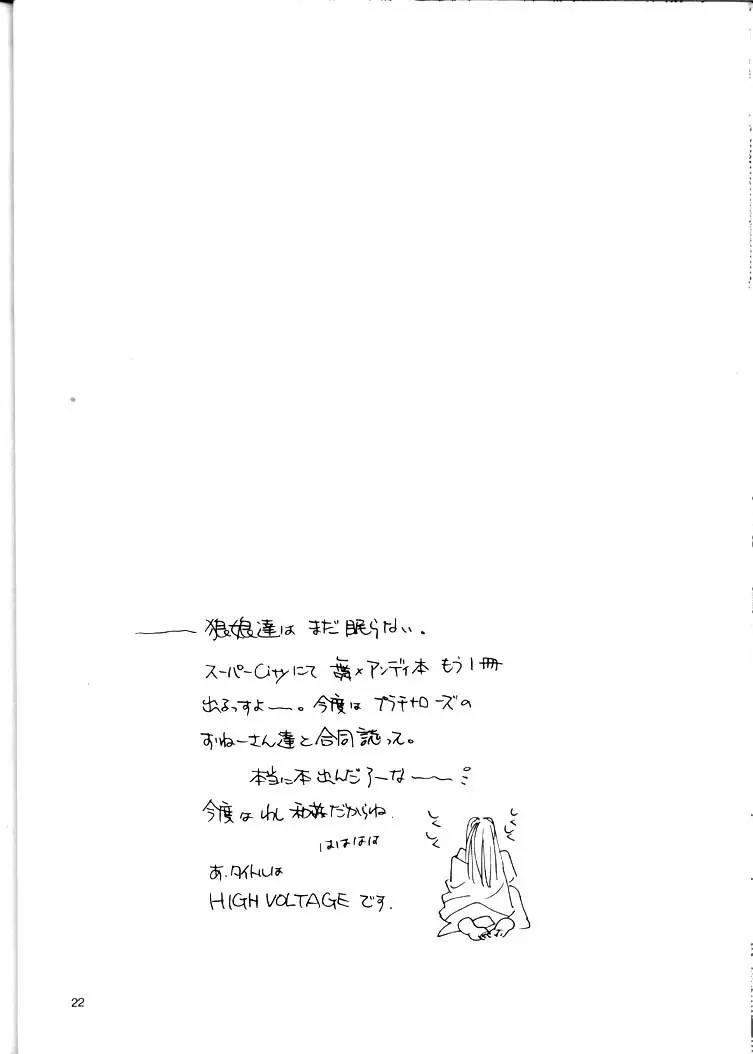 狼娘達は まだ眠らない。
スーパーCityにて ×アンディ本 もう1冊
出るっすよー。今度は プラチナローズの
おねーさん達と合同誌って。
本当に本出んだろーなー
今度は わし だからね.
ははははは
あ.タイトルは
HIGH VOLTAGE です.
しくしく
しくしく
22